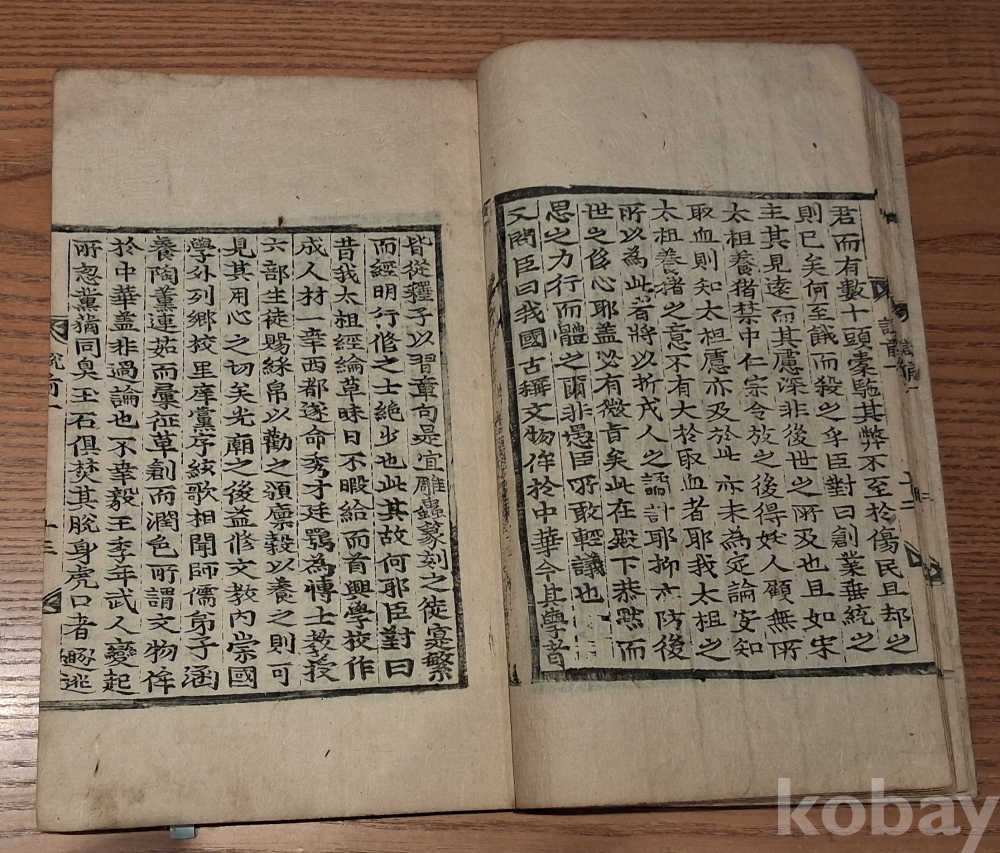 君而有數十頭橐馳其弊不至於傷民且却之
則已矣何至餓而殺之乎臣對曰創業垂統之
主其見遠而其慮深非後世之所及也且如宋
太祖養猪禁中仁宗令放之後得妖人顧無所
取血則知太祖慮亦及於此亦未為定論安知
太祖養猪之意不有大於取血者耶我太祖之
所以為此者將以折戎人之譎計耶抑亦防後
世之侈心耶盖必有微旨矣此在殿下恭黙而
思之力行而體之爾非愚臣所敢輕議也
又問臣曰我國古稱文物侔於中華今其學者
皆從釋子以習章句是宜雕蟲篆刻之徒寔繁
而經明行修之士絶少也此其故何耶臣對曰
昔我太祖經綸草昧日不暇給而首興學校作
成人材一幸西都遂命秀才廷鶚為博士教授
六部生徒賜綵帛以勸之頒廪糓以養之則可
見其用心之切矣光廟之後益修文教內崇國
學外列鄉校里庠黨序絃歌相聞師儒弟子涵
養陶薰連茹而彙征草創而潤色所謂文物侔
於中華盖非過論也不幸毅王季年武人變起
所忽薰猶同臭玉石俱焚其脫身虎口者
逃
kobay